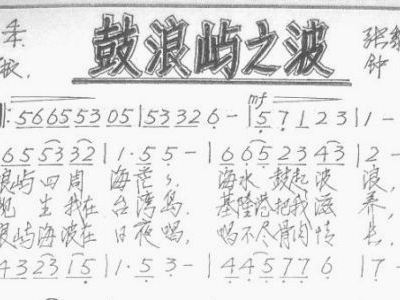 鼓浪屿之波
张
钟
mf
5665530 5 | 5 3 3 2 6 - | 5 7 1 2 3 | 1 -
6 5 5 3 3 2 | 1 · 5 5 - | 6 6 5 2 3 4 3 | 2 -
浪屿四周 海茫 海水鼓起波 浪,
生我在 台湾岛 基隆港把我滋 养,
浪屿海波在 日夜唱, 唱不尽骨肉情 长,
4 3 2 3 1 5 | 1 · 5 3 - | 4 4 5 7 7 6 | 7 -